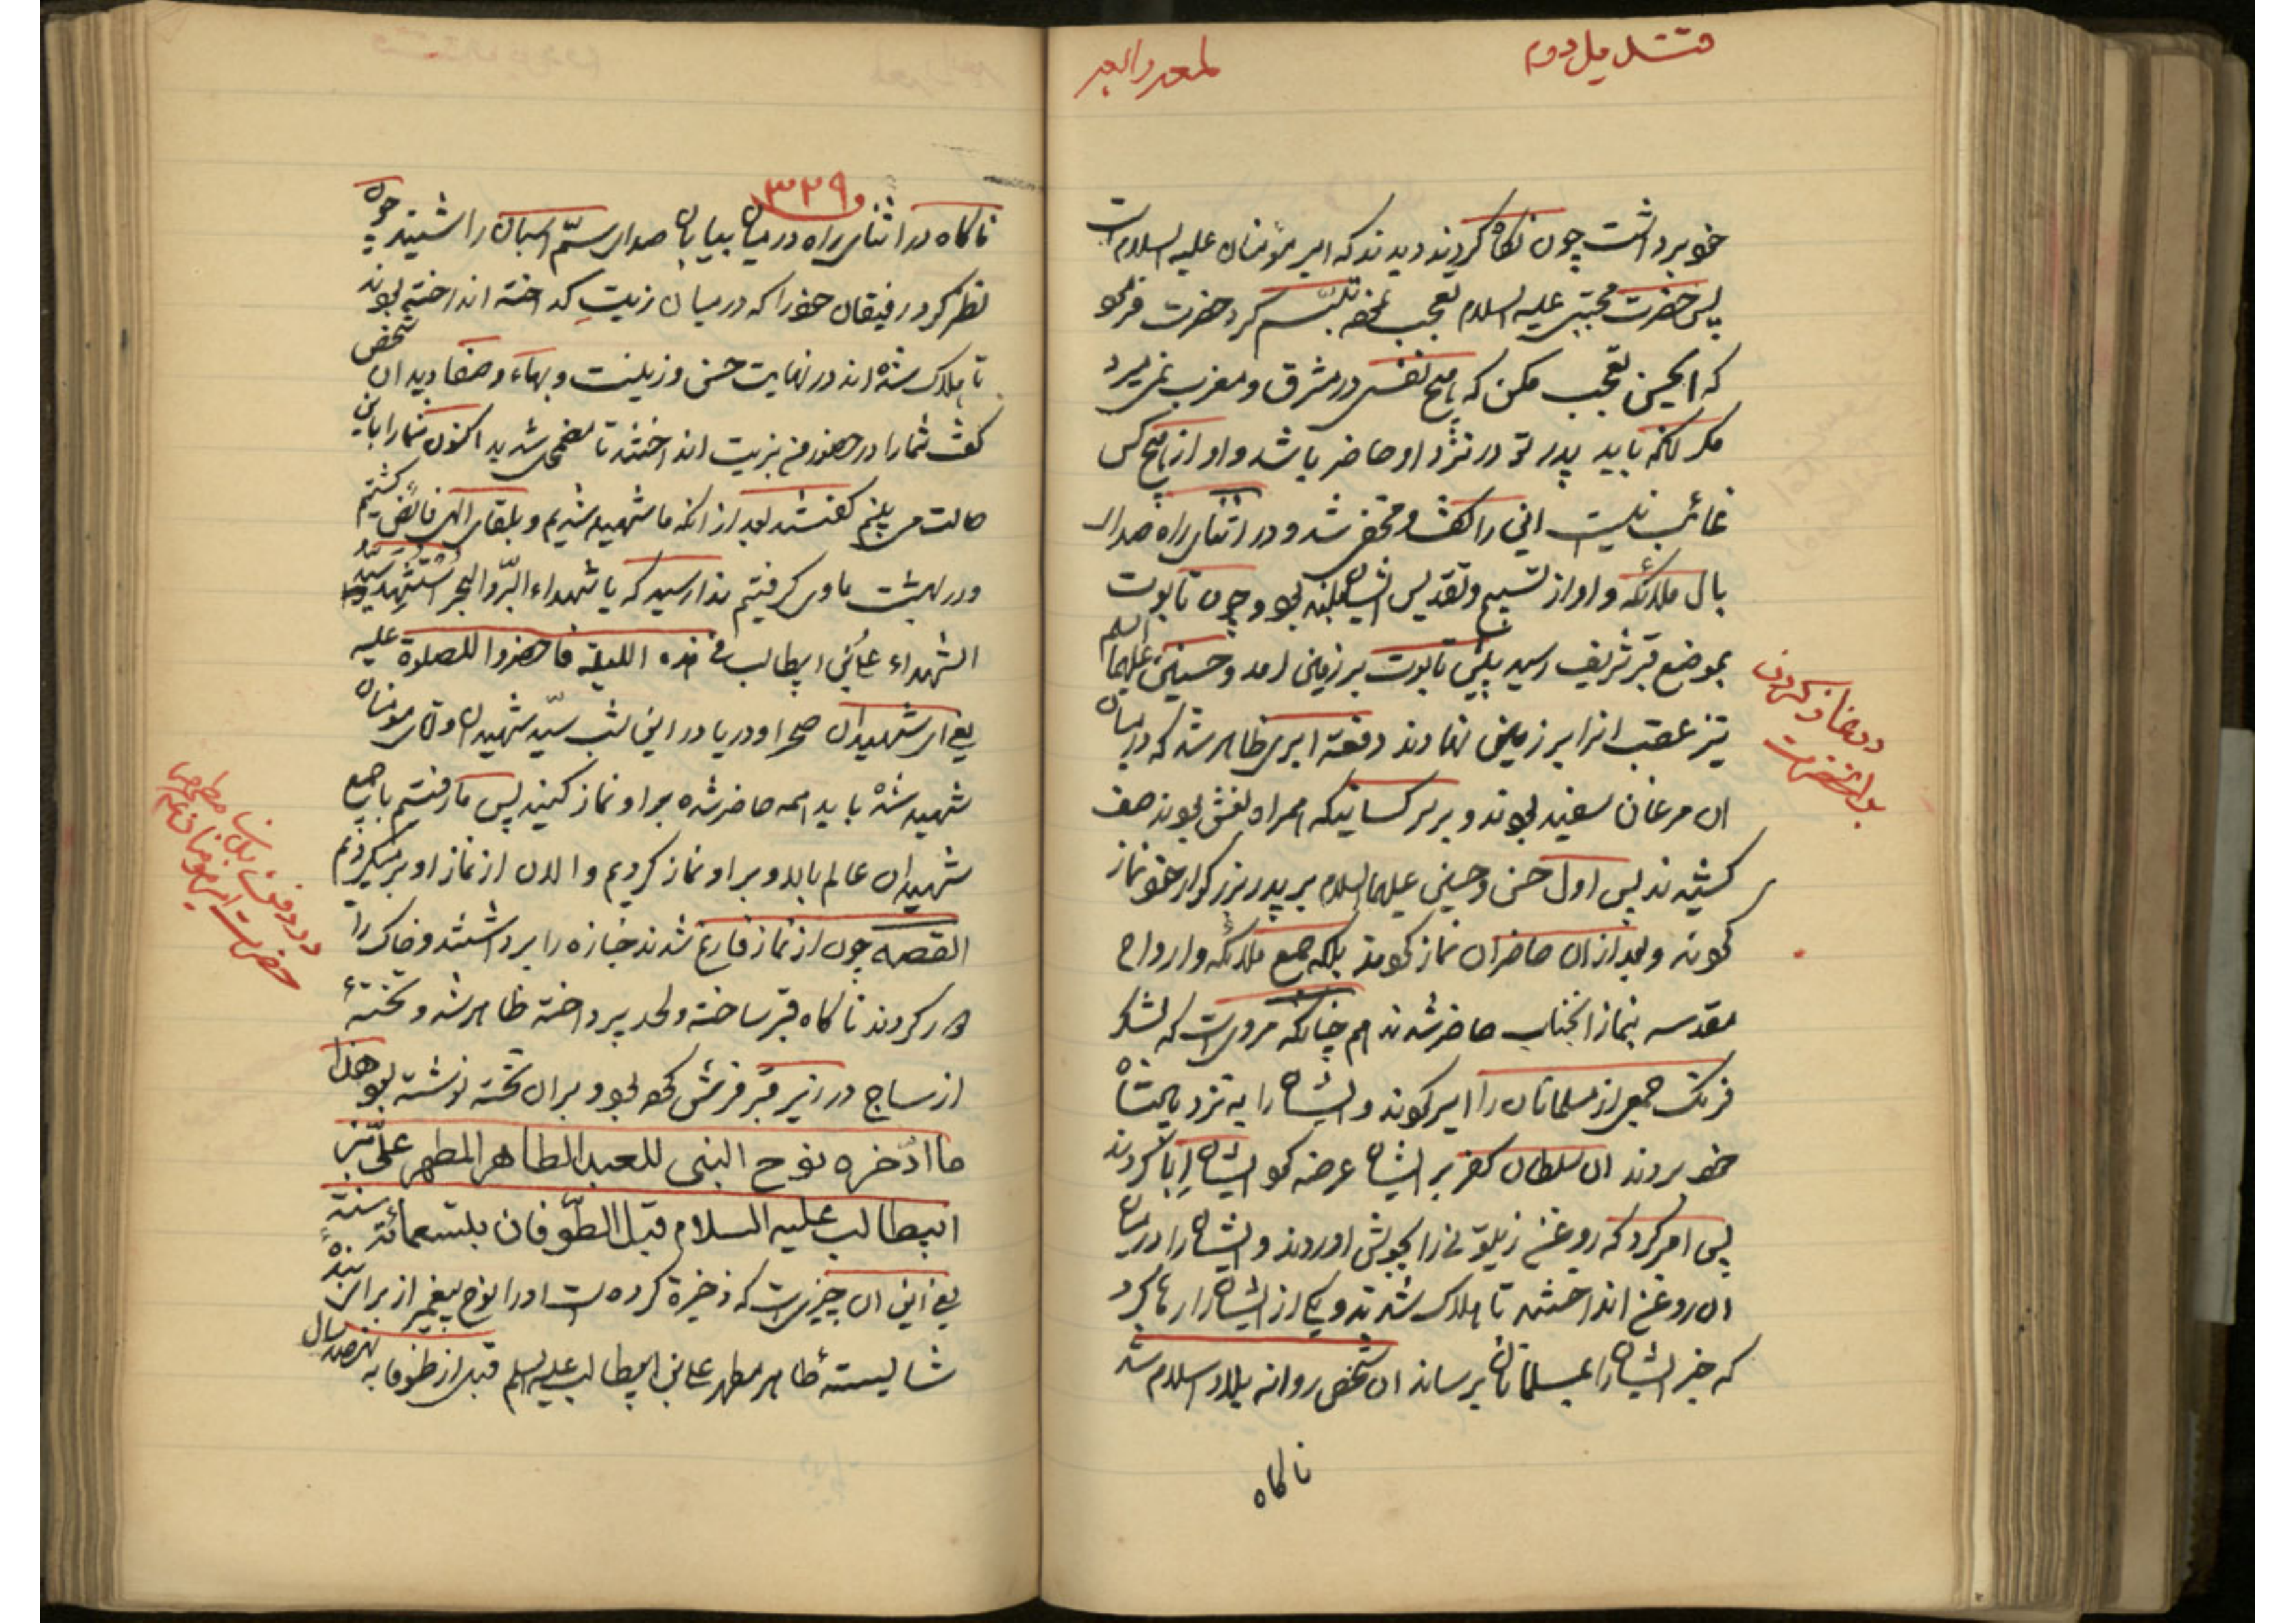 قندیل دوم
خود برداشت چون نگاه کردند دیدند که امیر مؤمنان علیه السلام است
پس حضرت مجتبی علیه السلام تعجب نموده تبسم کرد حضرت فرمود
که ای حسین تعجب مکن که هیچ نفسی در مشرق و مغرب نمی میرد
مگر آنکه باید پدر تو در نزد او حاضر باشد و او از هیچ کس
غائب نیست این را گفت و مخفی شد و در اثنای راه صدای
بال ملائکه و اواز تسبیح و تقدیس ایشان بلند بود و چون تابوت
بموضع قبر شریف رسید پیش تابوت بر زمین امد و حسنین علیهما السلم
نیز عقب انرا بر زمین نهادند دفعة ابری ظاهر شد که در میان
ان مرغان سفید بودند و بر سر کسانیکه همراه نعش بودند صف
کشیدند پس اول حسن و حسین علیهما السلام بر پدر بزرگوار خود نماز
کردند و بعد از ان حاضران نماز کردند بلکه جمیع ملائکه و ارواح
مقدسه بنماز انجناب حاضر شدند هم چنانکه مرویست که لشکر
فرنگ جمعی از مسلمانان را اسیر کردند و ایشان را به نزد پادشاه
خود بردند ان سلطان کفر بر ایشان عرضه کرد ایشان ابا کردند
پس امر کرد که روغن زیتونی را بجوش اوردند و ایشان را در میان
ان روغن انداختند تا هلاک شدند و یکی از ایشان را رها کرد
که خبر ایشان را بمسلمانان برساند ان شخص روانه بلاد اسلام شد
ناکاه
در نماز کردن
بر انحضرت
۳۲۹
ناکاه در اثنای راه در میان بیابان صدای سمّ اسبان را شنید چون
نظر کرد رفیقان خود را که در میان زیت گداخته انداخته بودند
تا هلاک شده اند در نهایت حسن و زینت و بهاء و صفا دید ان شخص
گفت شما را در حضور من بزیت انداختند تا مضمحل شدید اکنون شما را باین
حالت می بینم گفتند بعد از انکه ما شهید شدیم و بلقای الهی فائض گشتیم
و در بهشت ماوی گرفتیم ندا رسید که یا شهداء البرّ و البحر استشهد سیّد
الشهداء علی بن ابیطالب فی هذه اللیلة فاحضروا للصلوة علیه
یعنی ای شهیدان صحرا و دریا در این شب سیّد شهیدان و اقای مومنان
شهید شده باید همه حاضر شده بر او نماز کنید پس ما رفتیم با جمیع
شهیدان عالم بالا و بر او نماز کردیم و الان از نماز او بر میگردیم
القصه چون از نماز فارغ شدند جنازه را برداشتند و خاک را
دور کردند ناکاه قبر ساخته و لحد پرداخته ظاهر شد و تختهٔ
از ساج در زیر قبر فرش کرده بود و بران تخته نوشته بود هذا
ما ادّخره نوح النبی للعبد الطاهر المطهر علیّ بن
ابیطالب علیه السلام قبل الطّوفان بتسعمائة سنة
یعنی این ان چیزی است که ذخیره کرده است او را نوح پیغمبر از برای بندهٔ
شایستهٔ طاهر مطهر علی بن ابیطالب علیه السلم قبل از طوفان به نهصد سال
در دفن بدن مطهر
حضرت امیر مومنان